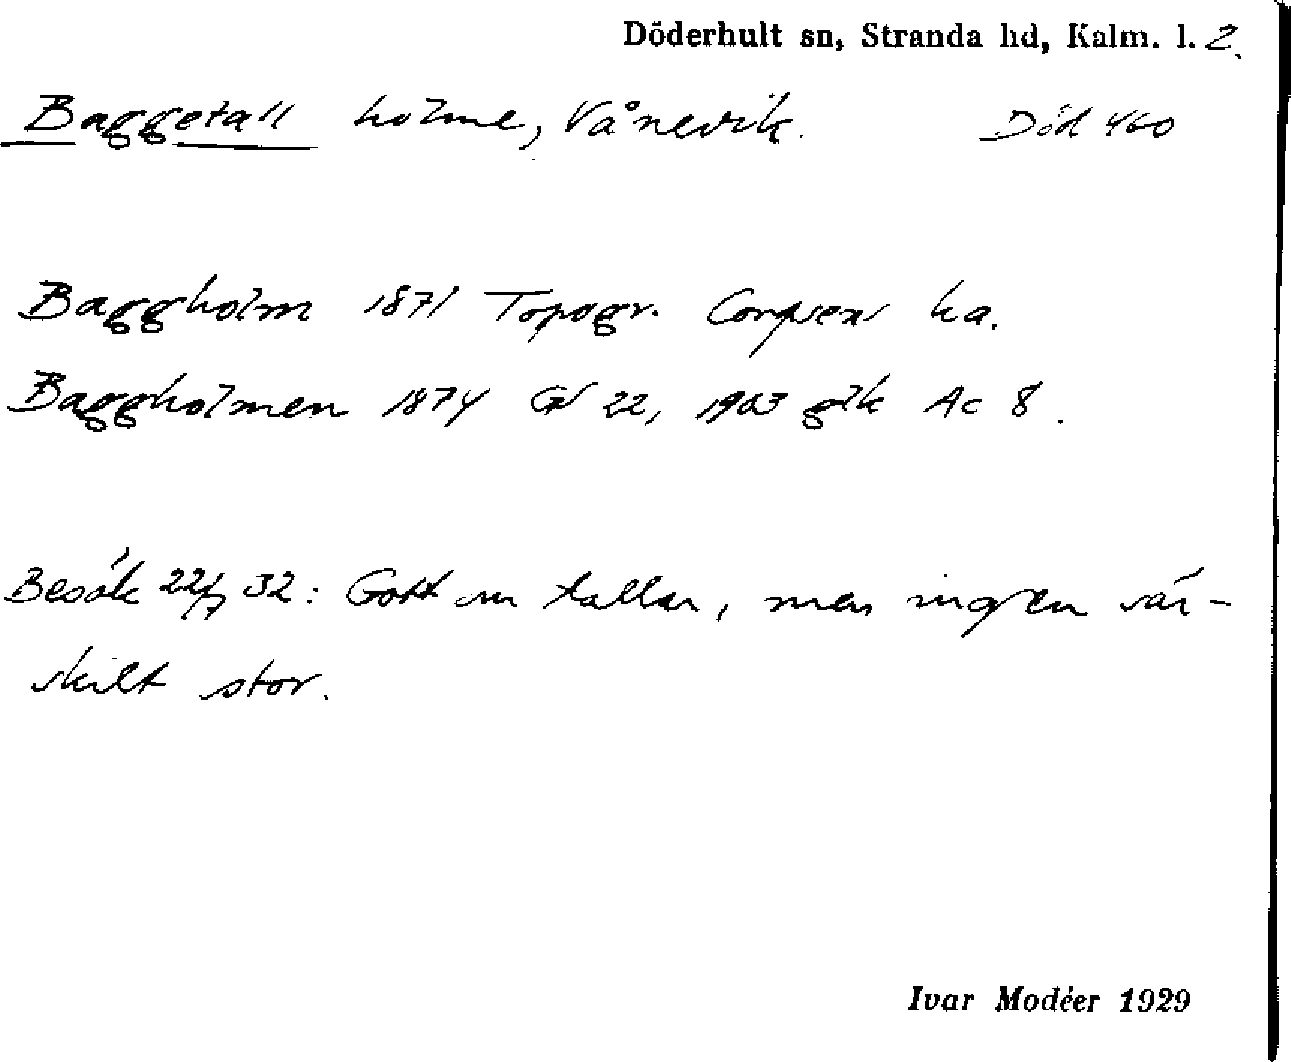 Döderhult sn, Stranda hd, Kalm. l. 2.
Baggetall holme, Vånevik. Död 460
Baggholm 1871 Topogr. Corpsen ka.
Baggholmen 1874 GV 22, 1903 gék Ac 8.
Besök 22/7 32: Gott om tallar, men ingen sär-
skilt stor.
Ivar Modéer 1929